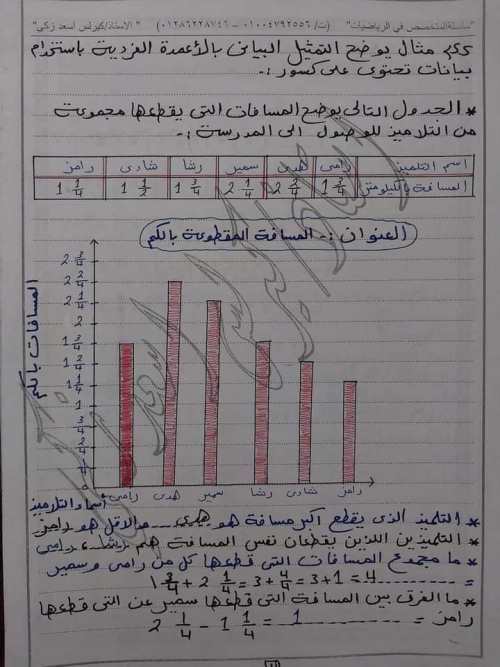 "سلسلة المتخصص في الرياضيات" (ت/ ٠١٠٠٤٧٩٢٥٥٦ – ٠١٢٨٦٢٢٨٧٤٦) "الأستاذ/كيرلس اسعد زكي"
مثال يوضح التمثيل البيانى بالأعمدة الفردية باستخدام
بيانات تحتوى على كسور :-
* الجدول التالى يوضح المسافات التى يقطعها مجموعة
من التلاميذ للوصول الى المدرسة :-
اسم التلميذ رامى هدى سمير رشا شادى رامز
المسافة بالكيلومتر 1 3/4 2 2/4 2 1/4 1 3/4 1 1/2 1 1/4
العنوان :- المسافة المقطوعة بالكم
المسافات بالكم
2 3/4
2 2/4
2 1/4
2
1 3/4
1 2/4
1 1/4
1
3/4
2/4
1/4
0
رامى هدى سمير رشا شادى رامز
أسماء التلاميذ
* التلميذ الذى يقطع اكبر مسافة هو هدى والاقل هو رامز
* التلميذين اللذين يقطعان نفس المسافة هم رشا ، رامى
* ما مجموع المسافات التى قطعها كل من رامى وسمير
1 3/4 + 2 1/4 = 3 + 4/4 = 3 + 1 = 4 =
* ما الفرق بين المسافة التى قطعها سمير عن التى قطعها
رامز = 2 1/4 - 1 1/4 = 1